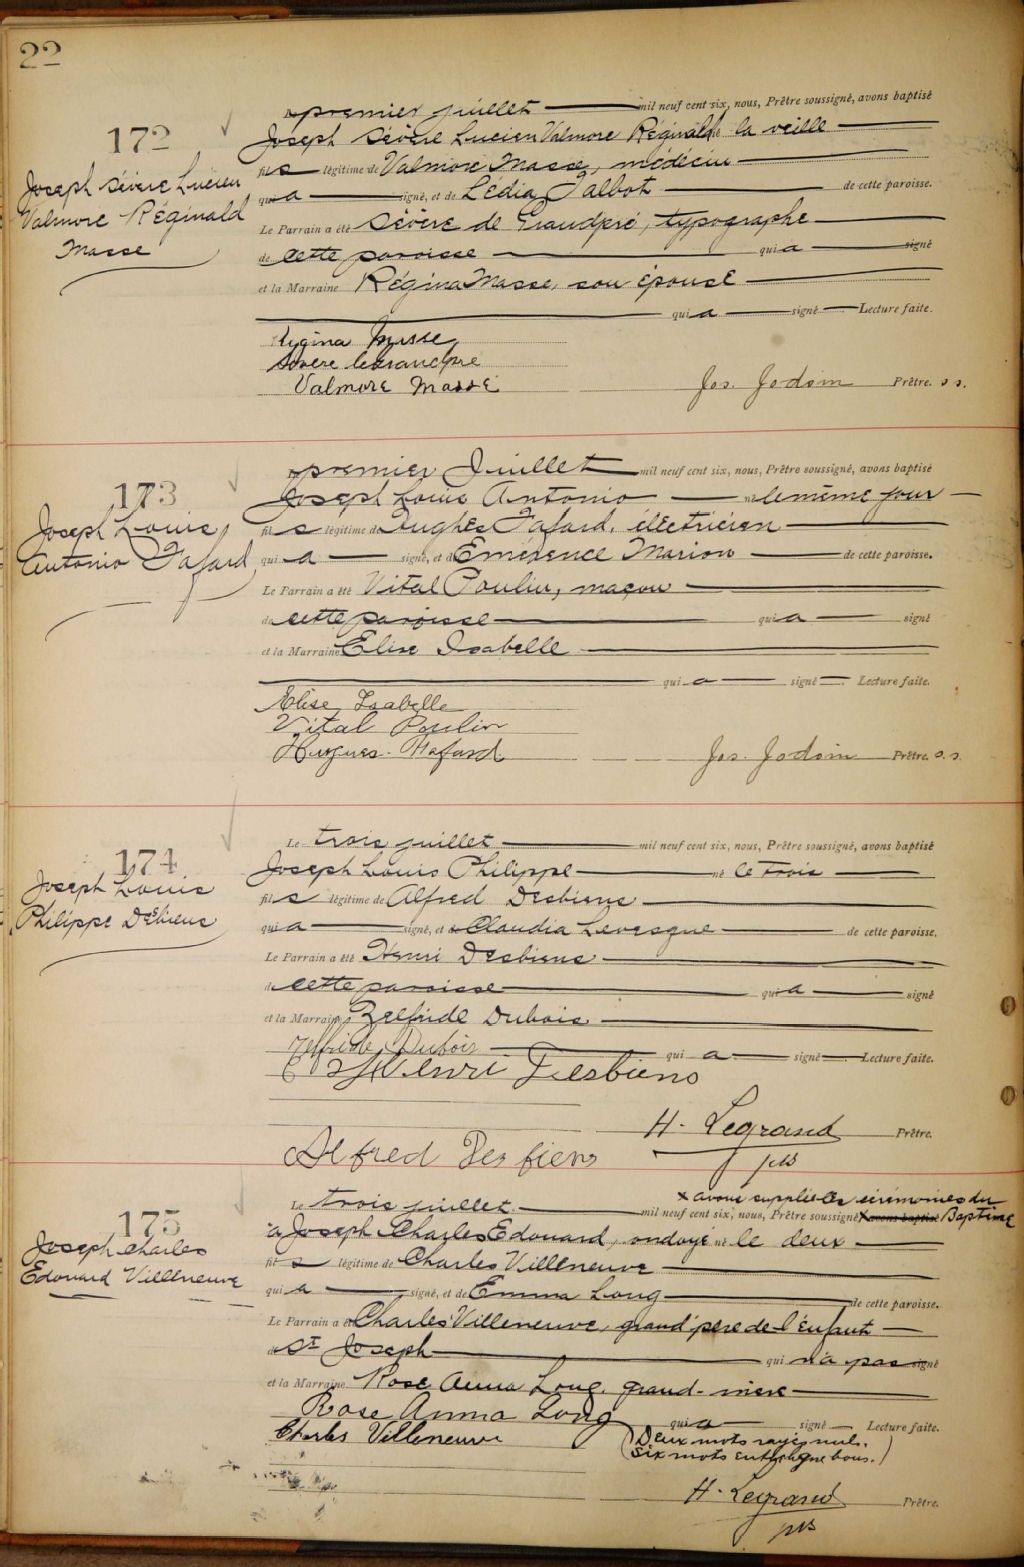 22
172
Joseph Sévère Lucien
Valmore Réginald
Masse
premier juillet mil neuf cent six, nous, Prêtre soussigné, avons baptisé
Joseph Sévère Lucien Valmore Réginald né la veille
fils légitime de Valmore Masse, médecin
qui a signé, et de Lédia Talbot de cette paroisse.
Le Parrain a été Sévère de Grandpré, typographe
de cette paroisse qui a signé
et la Marraine Régina Masse, son épouse
qui a signé Lecture faite.
Regina Masse
Sévère deGrandpré
Valmore Masse
Jos. Jodoin Prêtre. s.s.
173
Joseph Louis
Antonio Fafard
premier Juillet mil neuf cent six, nous, Prêtre soussigné, avons baptisé
Joseph Louis Antonio né le même jour
fils légitime de Hughes Fafard, électricien
qui a signé, et de Emérence Marion de cette paroisse.
Le Parrain a été Vital Poulin, maçon
de cette paroisse qui a signé
et la Marraine Elise Isabelle
qui a signé Lecture faite.
Elise Isabelle
Vital Poulin
Hugues Fafard
Jos. Jodoin Prêtre. s.s.
174
Joseph Louis
Philippe Desbiens
Le trois juillet mil neuf cent six, nous, Prêtre soussigné, avons baptisé
Joseph Louis Philippe né le trois
fils légitime de Alfred Desbiens
qui a signé, et de Claudia Levesque de cette paroisse.
Le Parrain a été Henri Desbiens
de cette paroisse qui a signé
et la Marraine Zelfride Dubois
Zelfride Dubois qui a signé Lecture faite.
Henri Desbiens
H. Legrand Prêtre.
Alfred Desbiens pss
175
Joseph Charles
Edouard Villeneuve
x avons suppléé les cérémonies du
Le trois juillet mil neuf cent six, nous, Prêtre soussigné, x avons baptisé Baptême
à Joseph Charles Edouard, ondoyé né le deux
fils légitime de Charles Villeneuve
qui a signé, et de Emma Long de cette paroisse.
Le Parrain a été Charles Villeneuve, grand'père de l'enfant
de St Joseph qui n'a pas signé
et la Marraine Rose Anna Long, grand-mère
Rose Anna Long qui a signé Lecture faite.
Charles Villeneuve
(Deux mots rayés nuls.
Six mots entre ligne bons.)
H. Legrand Prêtre.
pss